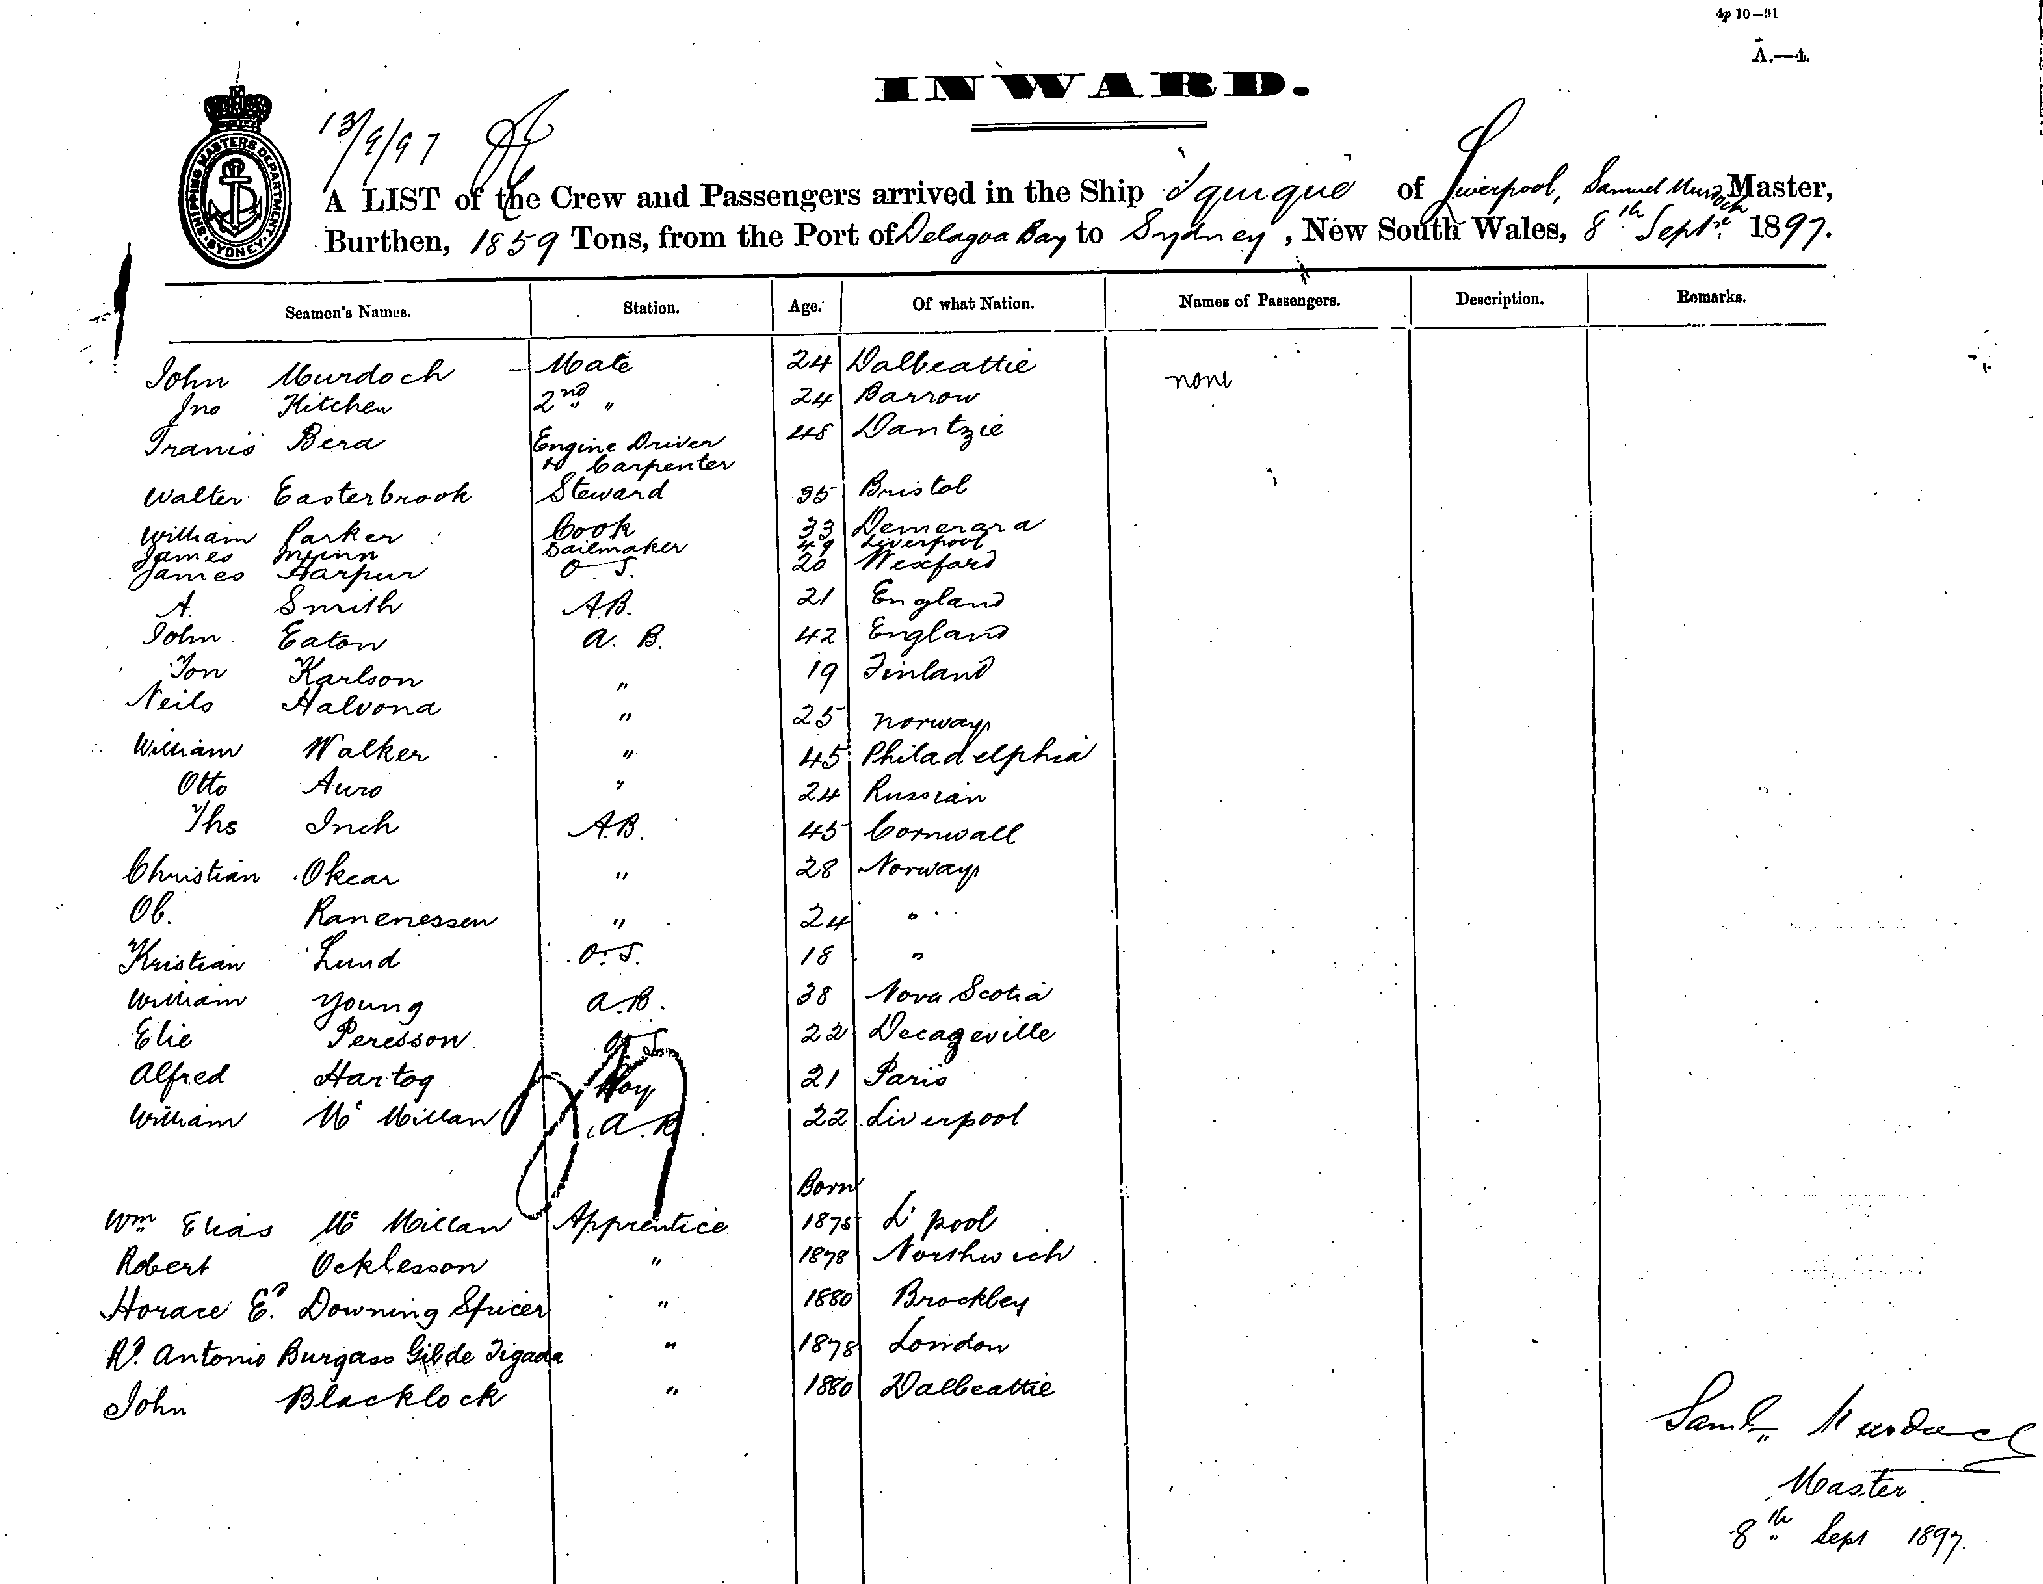 4p 10—91
A.—4.
INWARD.
SHIPPING MASTERS DEPARTMENT SYDNEY
13/9/97
A LIST of the Crew and Passengers arrived in the Ship "Iquique" of Liverpool, Samuel Murdoch Master,
Burthen, 1859 Tons, from the Port of Delagoa Bay to Sydney, New South Wales, 8th Septr. 1897.
Seamen's Names. Station. Age. Of what Nation. Names of Passengers. Description. Remarks.
John Murdoch Mate 24 Dalbeattie none
Jno Kitchen 2nd " 24 Barrow
Franis Bera Engine Driver 48 Dantzie
to Carpenter
Walter Easterbrook Steward 35 Bristol
William Parker Cook 33 Demerara
James Munn Sailmaker 49 Liverpool
James Harpur O S. 20 Wexford
A. Smith A.B. 21 England
John Eaton A. B. 42 England
Jon Karlson " 19 Finland
Neils Halvona " 25 Norway
William Walker " 45 Philadelphia
Otto Auro " 24 Russian
Ths Inch A.B. 45 Cornwall
Christian Okear " 28 Norway
Ob. Ranenessen " 24 "
Kristian Lund O.S. 18 "
William Young A.B. 38 Nova Scotia
Elie Peresson O.S 22 Decazeville
Alfred Hartog Boy 21 Paris
William Mc Millan A.B. 22 Liverpool
Born
Wm Elias Mc Millan Apprentice 1875 L'pool
Robert Ocklesson " 1878 Northwich
Horace Ed. Downing Spicer " 1880 Brockley
Rd. Antonio Burgass Gilde Tigada " 1878 London
John Blacklock " 1880 Dalbeattie
Saml. Murdoch
Master
8th Sept 1897.